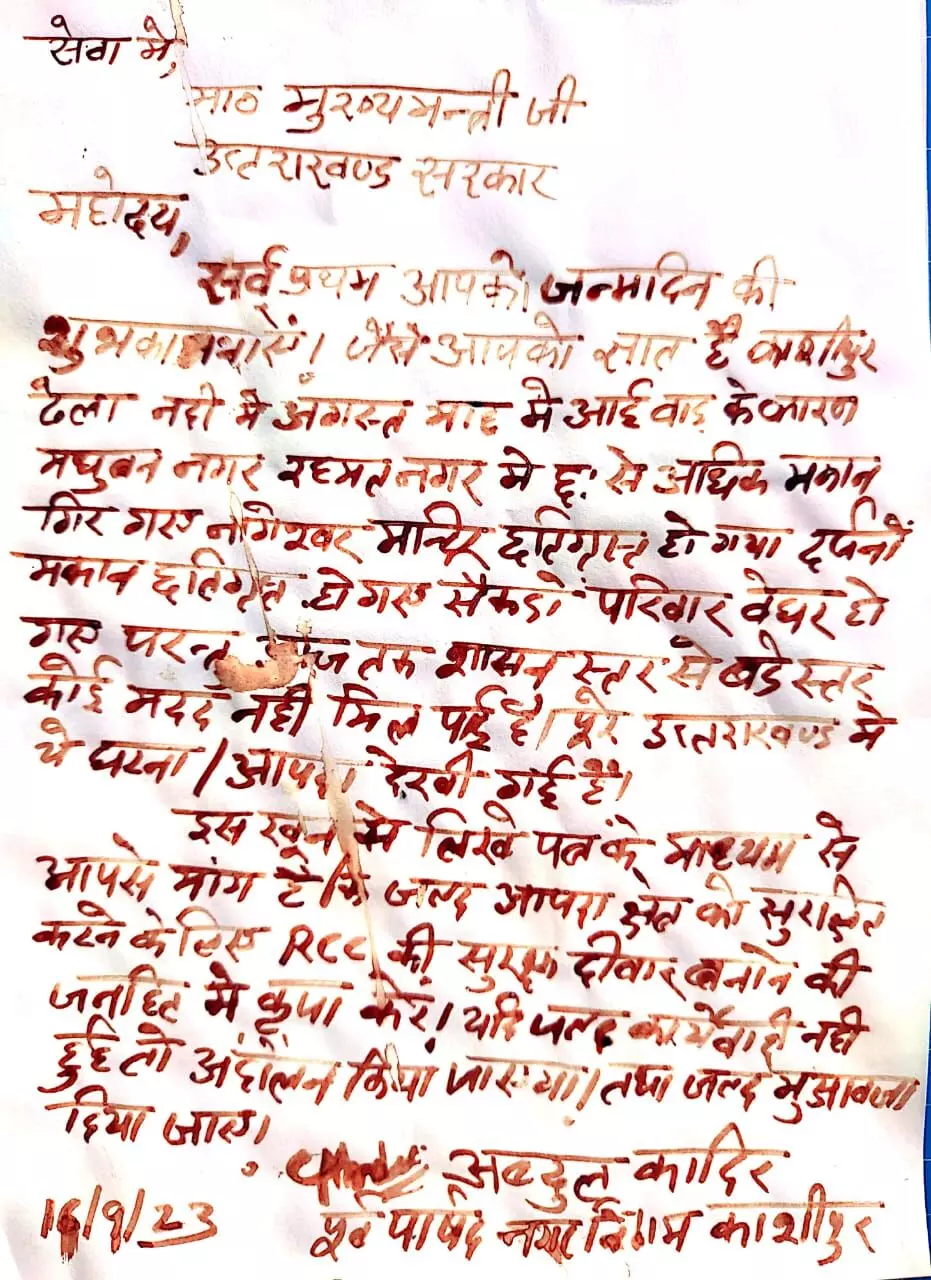 सेवा मे,
माo मुख्यमन्त्री जी
उत्तराखण्ड सरकार
महोदय,
सर्व प्रथम आपको जन्मदिन की
शुभकामनाएं। जैसे आपको ज्ञात है काशीपुर
ढेला नदी मे अगस्त माह मे आई वाड़ के कारण
मधुबन नगर रहमत नगर मे छः से अधिक मकान
गिर गए नागेश्वर मन्दिर छतिग्रस्त हो गया दर्जनों
मकान छतिग्रस्त हो गए सैकडों परिवार वेघर हो
गए परन्तु तक शासन स्तर से बडे स्तर
कोई मदद नही मिल पाई है। पूरे उत्तराखण्ड मे
ये घटना / आपदा देखी गई है।
इस खून से लिखे पत्र के माध्यम से
आपसे मांग है कि जल्द आपदा क्षेत्र को सुरक्षित
करने के लिए RCC की सुरक्षा दीवार बनाने की
जनहित मे कृपा करें। यदि जल्द कार्यवाही नही
हुई तो अंदोलन किया जाएगा। तथा जल्द मुआवजा
दिया जाए।
अब्दुल कादिर
16/9/23 पूर्व पार्षद नगर निगम काशीपुर